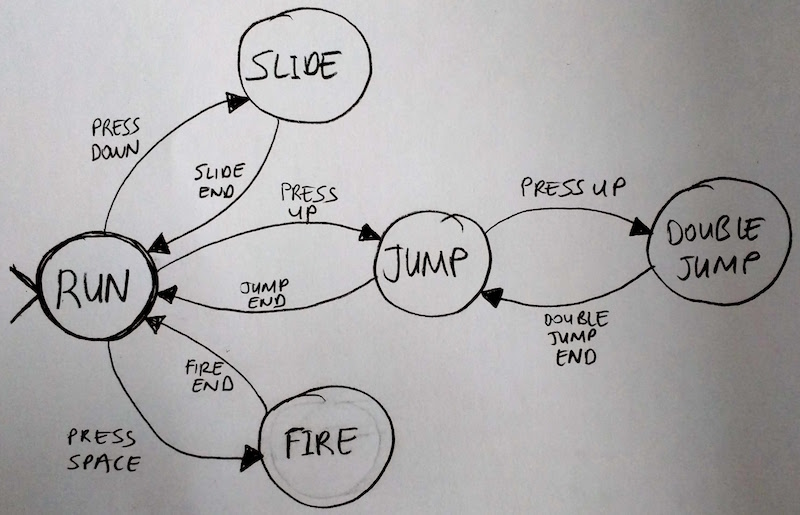 SLIDE
PRESS
DOWN
SLIDE
END
PRESS
UP
PRESS UP
RUN
JUMP
DOUBLE
JUMP
JUMP
END
DOUBLE
JUMP
END
FIRE
END
PRESS
SPACE
FIRE